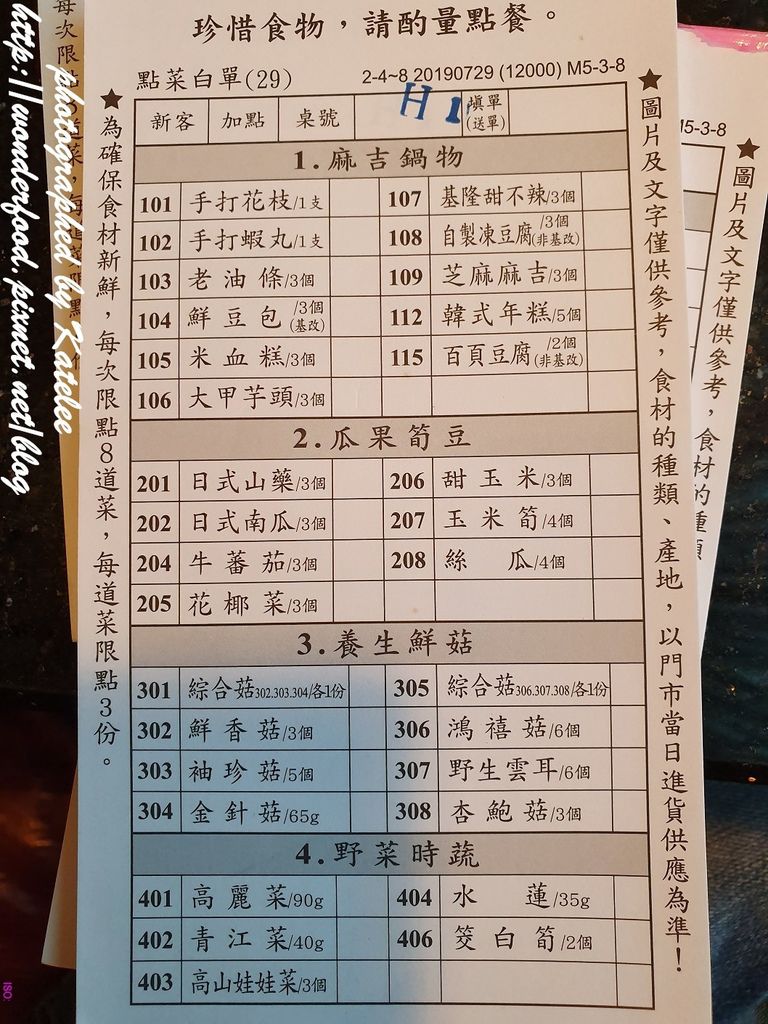 珍惜食物，請酌量點餐。
點菜白單(29)
2-4~8 20190729 (12000) M5-3-8
新客 加點 桌號 H1 填單(送單)
1.麻吉鍋物
101 手打花枝/1支 107 基隆甜不辣/3個
102 手打蝦丸/1支 108 自製凍豆腐/3個(非基改)
103 老油條/3個 109 芝麻麻吉/3個
104 鮮豆包/3個(基改) 112 韓式年糕/5個
105 米血糕/3個 115 百頁豆腐/2個(非基改)
106 大甲芋頭/3個
2.瓜果筍豆
201 日式山藥/3個 206 甜玉米/3個
202 日式南瓜/3個 207 玉米筍/4個
204 牛蕃茄/3個 208 絲瓜/4個
205 花椰菜/3個
3.養生鮮菇
301 綜合菇302.303.304/各1份 305 綜合菇306.307.308/各1份
302 鮮香菇/3個 306 鴻禧菇/6個
303 袖珍菇/5個 307 野生雲耳/6個
304 金針菇/65g 308 杏鮑菇/3個
4.野菜時蔬
401 高麗菜/90g 404 水蓮/35g
402 青江菜/40g 406 筊白筍/2個
403 高山娃娃菜/3個
★為確保食材新鮮，每次限點8道菜，每道菜限點3份。
★圖片及文字僅供參考，食材的種類、產地，以門市當日進貨供應為準！
15-3-8
★圖片及文字僅供參考，食材的種類
每次限點
photographed by Katelee
http://wonderfood.pixnet.net/blog
ISO: